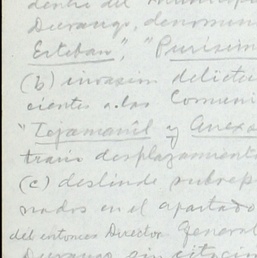 dentro del
Durango, denomin
Esteban", "Purísim
(b) invasión delictu
cientes a las Comuni
"Tejamanil y Anexo
train desplazamiento
(c) deslinde subrep
nados en el apartado
del entonces Director General
Durango sin citación